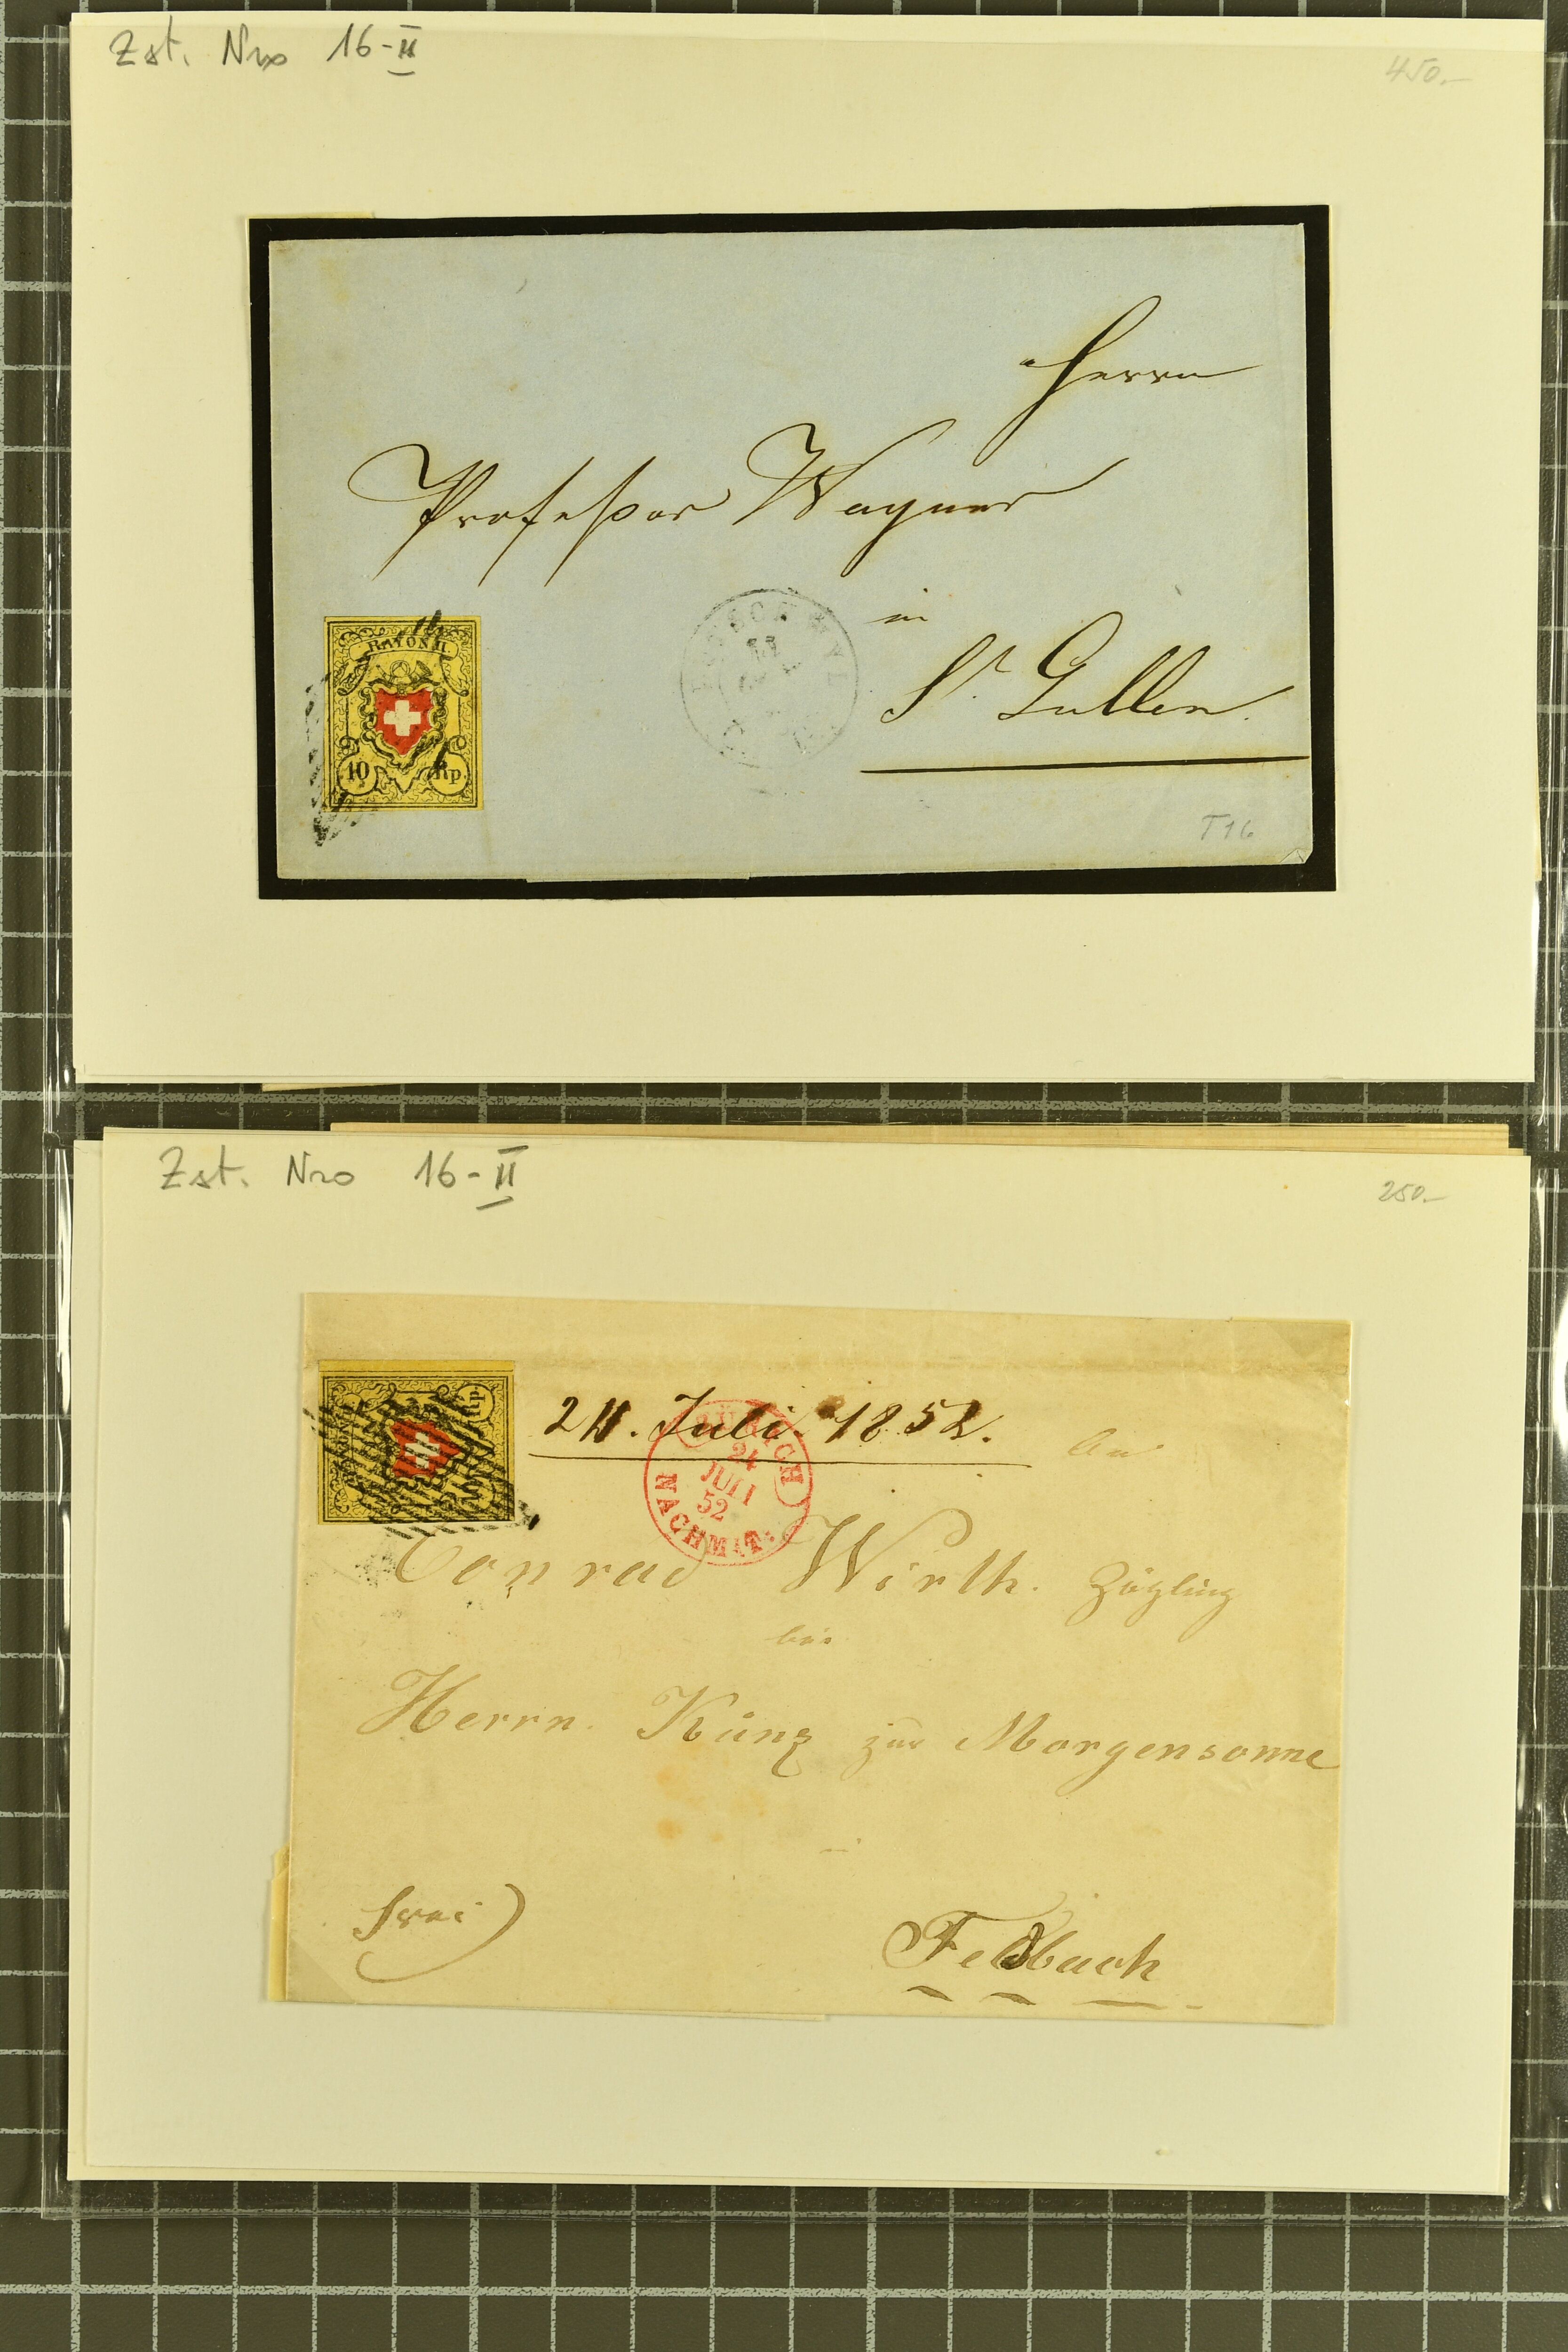 Zst. Nro 16-II
450.-
Herrn
Profeßor Wagner
in
St. Gallen.
RAYON II.
10 Rp.
T16
Zst. Nro 16-II
250.-
Rp.
24. Juli. 1852.
An
ZÜRICH
24
JULI
52
NACHMIT:
Conrad Wirth. Zögling
bei
Herrn. Künz zur Morgensonne
frei
Feldbach